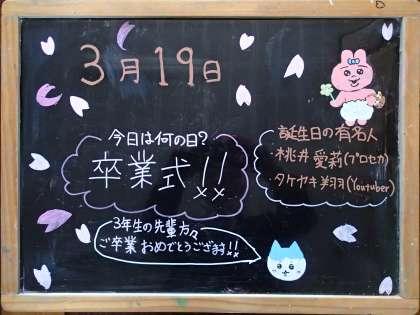 3月19日
今日は何の日?
卒業式!!
誕生日の有名人
・桃井愛莉(プロセカ)
・タケヤキ翔(Youtuber)
3年生の先輩方々
ご卒業おめでとうございます!!